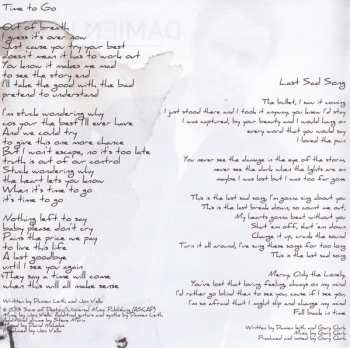 Time to Go
Out of breath
I guess it's over now
Just cause you try your best
doesn't mean it has to work out
You know it makes me mad
to see the story end
I'll take the good with the bad
pretend to understand
I'm stuck wondering why
cos your the best I'll ever have
And we could try
to give this one more chance
But I won't escape, no it's too late
truth is out of our control
Stuck wondering why
the heart lets you know
When it's time to go
it's time to go
Nothing left to say
baby please don't cry
Pains the price we pay
to live this life
A last goodbye
until I see you again
They say a time will come
when this will all make sense
Written by Damien Leith and
Last Sad Song
The bullet, I saw it coming
I just stood there and I took it anyway, you knew I'd stay
I was captured, by your beauty and I would hang on
every word that you would say
I loved the pain
You never see the damage in the eye of the storm,
never see the dark when the lights are on
maybe I was lost but I was too far gone
This is the last sad song, I'm gonna sing about you
This is the last break down, so count me out,
My hearts gonna beat without you
Shut 'em off, shut 'em down
Change it up, wreck the sound
Turn it all around, I've sung these songs for too long
This is the last sad song
Mercy, Only the Lonely,
You've lost that loving feeling, always on my mind
I'd rather go blind than to see you, cause if I see you,
I'm so afraid that I might slip and change my mind
Fall back in time
Written by Damien Leith and Gary Clark
Music by Gary Clark
Produced and mixed by Gary Clark